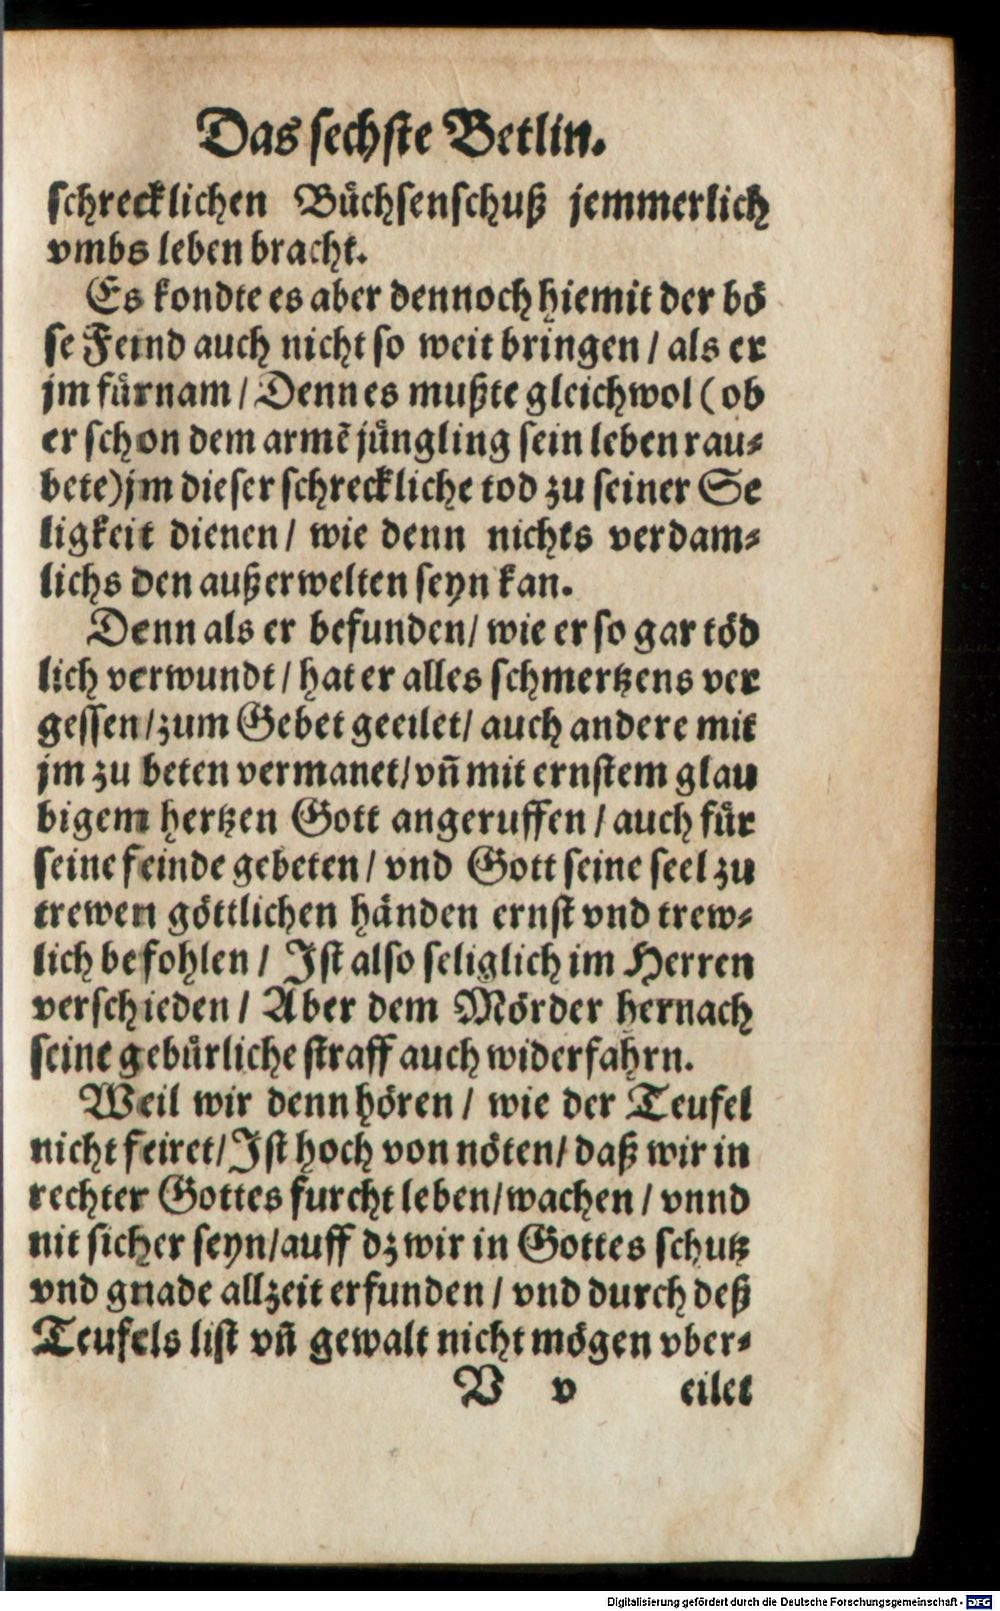 Das sechste Betlin.
schrecklichen Bůchsenschuß jemmerlich
vmbs leben bracht.
Es kondte es aber dennoch hiemit der bö
se Feind auch nicht so weit bringen / als er
jm fůrnam / Denn es mußte gleichwol (ob
er schon dem armẽ jůngling sein leben rau-
bete) jm dieser schreckliche tod zu seiner Se
ligkeit dienen / wie denn nichts verdam-
lichs den außerwelten seyn kan.
Denn als er befunden / wie er so gar töd
lich verwundt / hat er alles schmertzens ver
gessen / zum Gebet geeilet / auch andere mit
jm zu beten vermanet / vñ mit ernstem glau
bigem hertzen Gott angeruffen / auch fůr
seine feinde gebeten / vnd Gott seine seel zu
trewen göttlichen händen ernst vnd trew-
lich befohlen / Ist also seliglich im Herren
verschieden / Aber dem Mörder hernach
seine gebůrliche straff auch widerfahrn.
Weil wir denn hören / wie der Teufel
nicht feiret / Ist hoch von nöten / daß wir in
rechter Gottes furcht leben / wachen / vnnd
nit sicher seyn / auff dz wir in Gottes schutz
vnd gnade allzeit erfunden / vnd durch deß
Teufels list vñ gewalt nicht mögen vber-
V v eilet
Digitalisierung gefördert durch die Deutsche Forschungsgemeinschaft - DFG